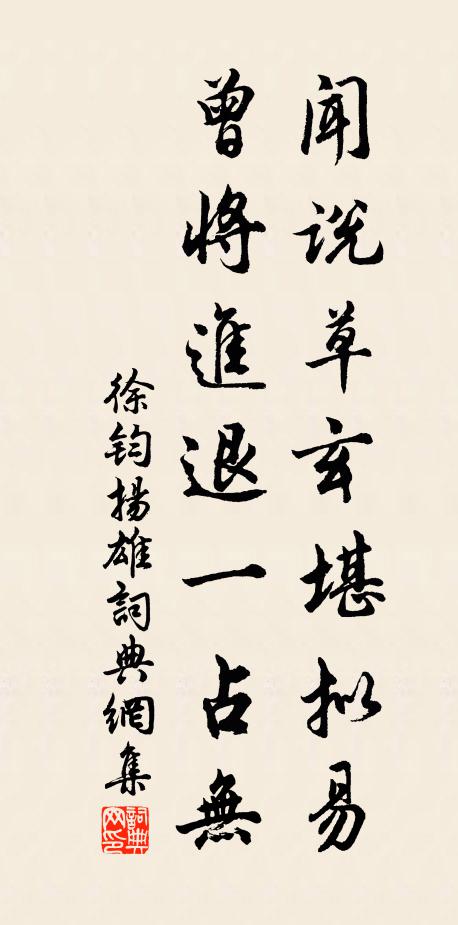 闻说草玄堪拟易
曾将進退一占無
徐钧揚雄詞典網集
詞典网印